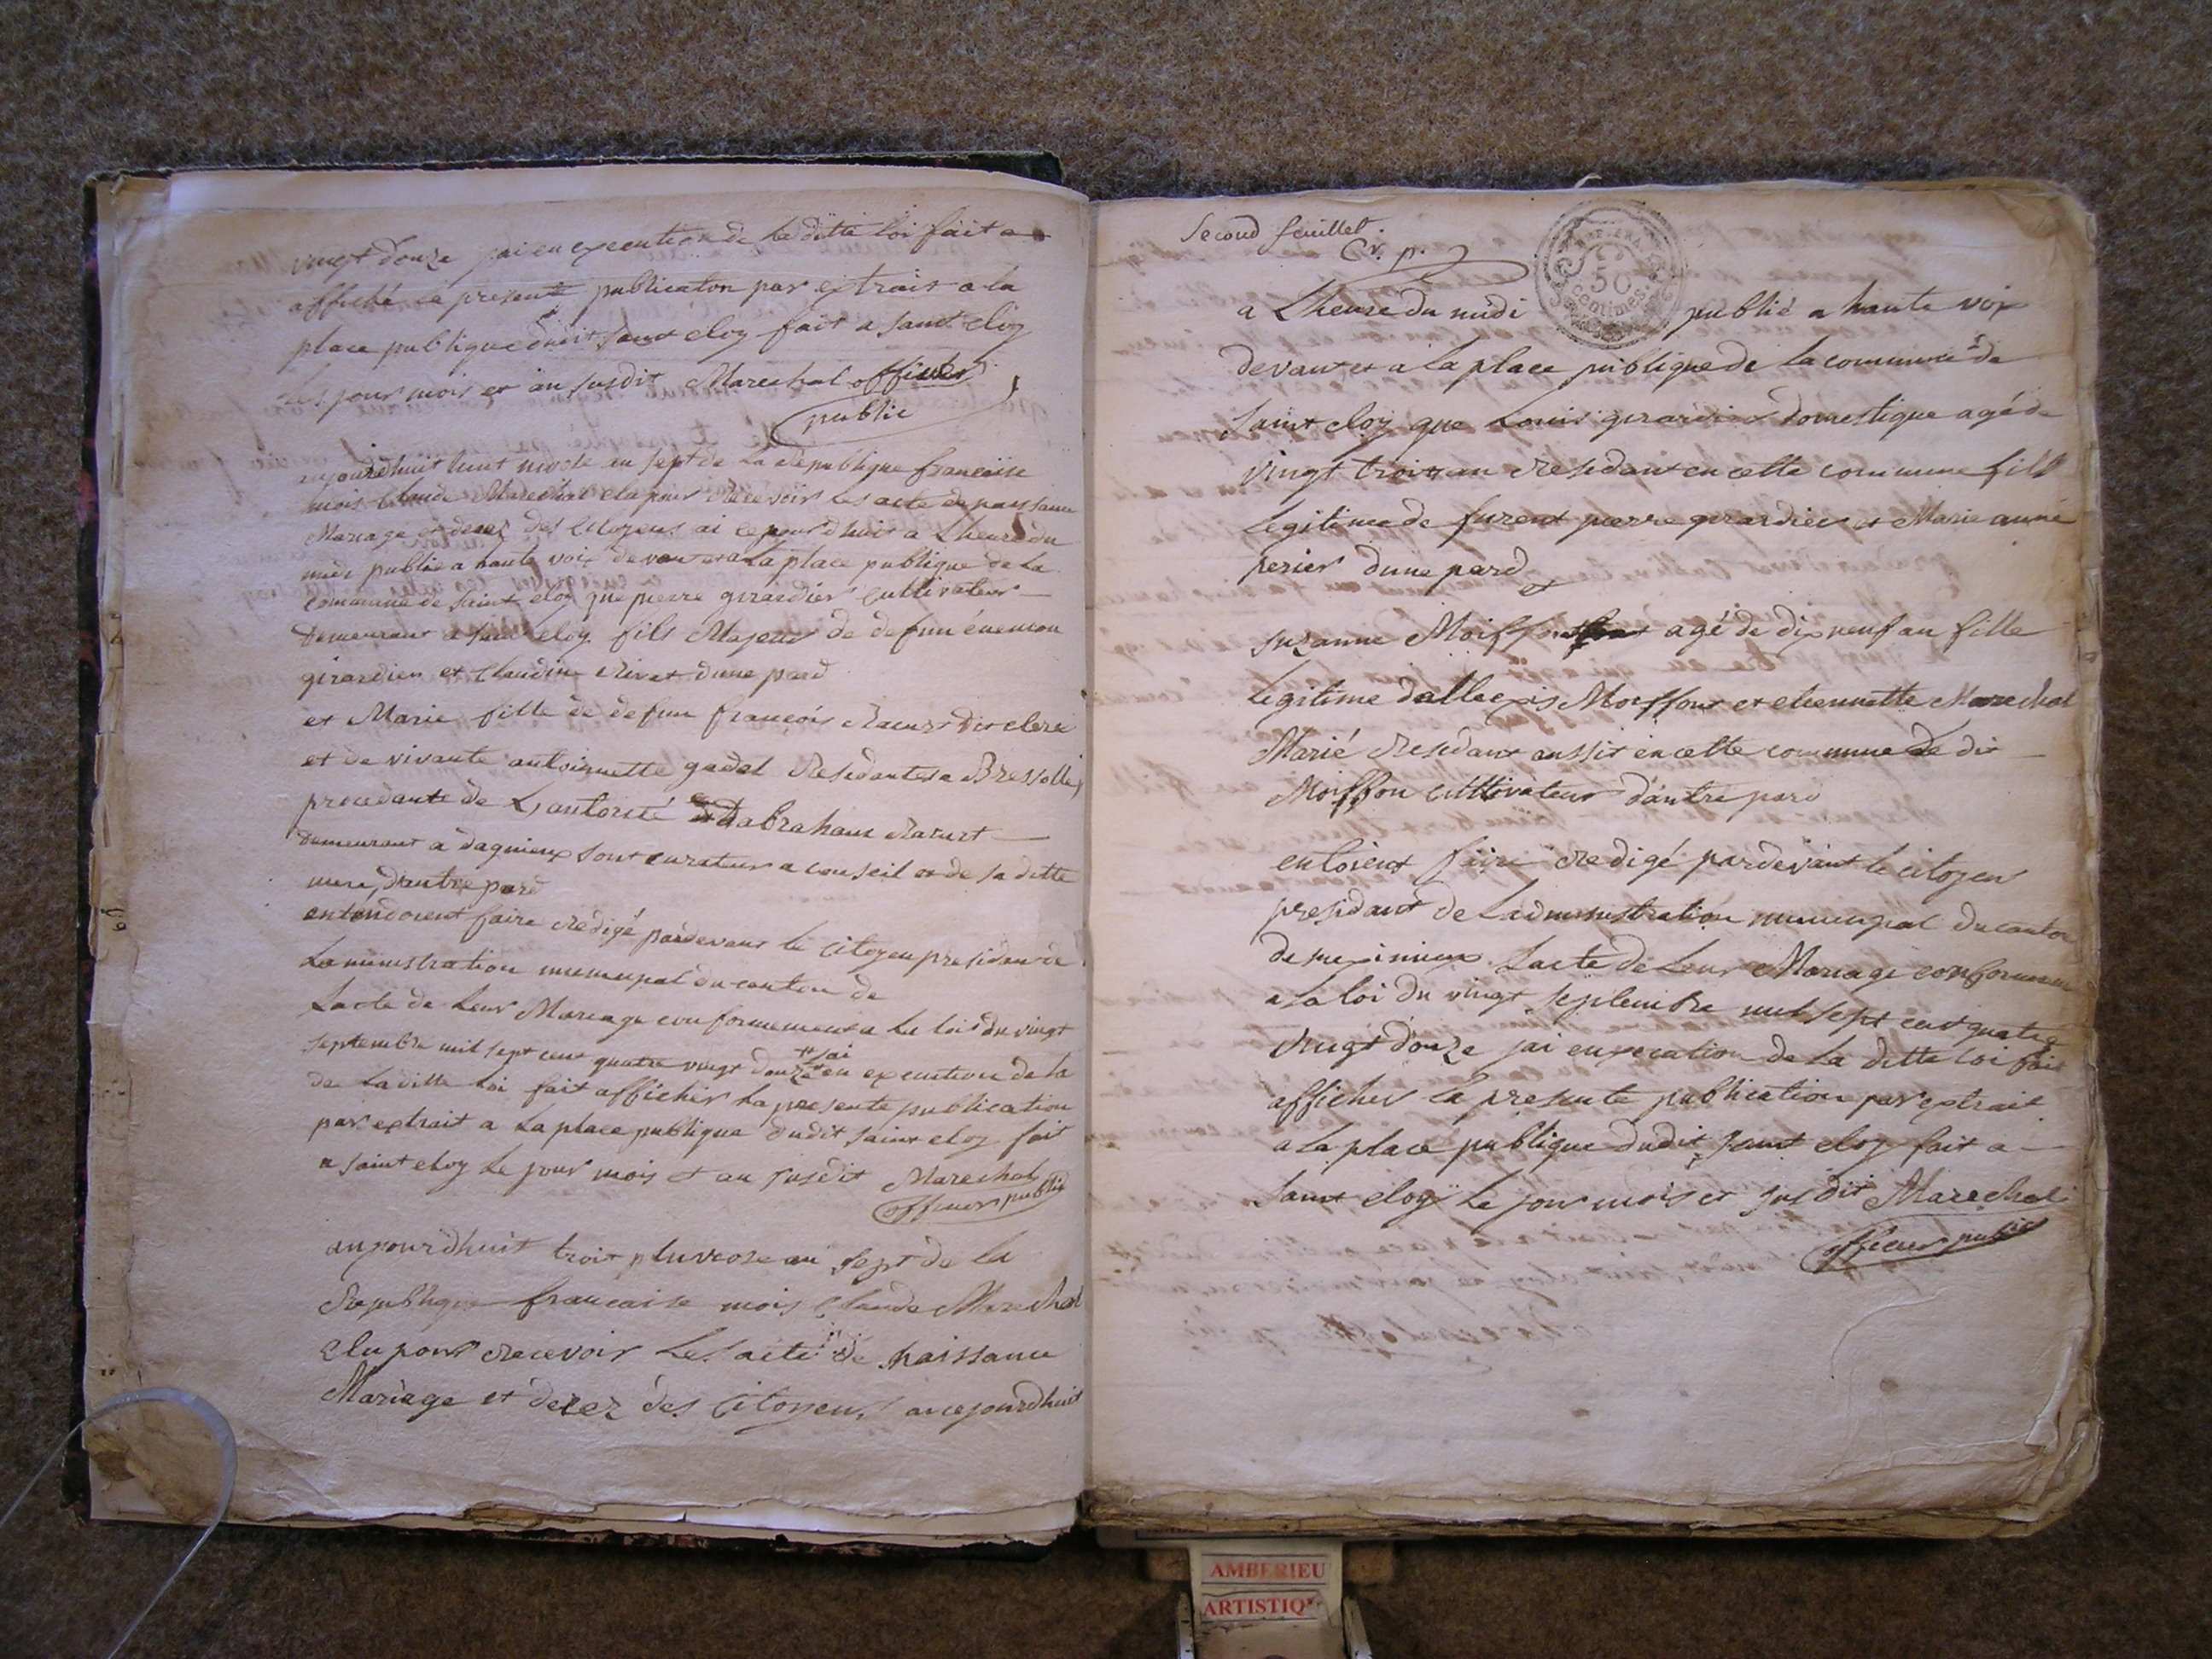 vingt douze jai en execution de la ditte loi fait a
affiché la presente publicaton par extrais a la
place publique dudit saint eloy fait a saint eloy
les jour mois et an susdit Marechal officier
public
aujourdhuit huit nivose an sept de la republique francaise
mois Claude Marechal elu pour recevoir les acte de naissance
Mariage et decez des Citoyens ai cejourdhuit a Lheure du
midi publié a haute voix devant et a La place publique de La
commune de saint eloy que pierre girardier cultivateur
Demeurant a saint eloy fils Majeur de defun
girardier et Claudine Rivat dune pard
et Marie fille de defun françois Racurt dit clere
et de vivante antoinette gadel Residantes a Bressolle
procedante de L'autorité Dabraham Racurt
demeurant a dagnieux sont curateur a conseil et de sa ditte
mere, dautre pard
entendoient faire redigé pardevant le Citoyen presidan de
Laministration municipal du canton de
Lacte de Leur Mariage conformement a La loi du vingt
septembre mil sept cent quatre vingt douze jai en execution de la
de La ditte Loi fait afficher La presente publication
par extrait a La place publique dudit saint eloy fait
a saint eloy Le jour mois et an susdit Marechal
officier public
aujourdhuit troit pluviose an sept de la
Republique francaise mois Claude Marechal
Elu pour recevoir Les acte de naissance
Mariage et decez des Citoyens ai cejourdhuit
Second feuillet.
50
centimes.
a Lheure du midi publié a haute voix
devant et a La place publique de La commune de
Saint eloy que Louis girardier domestique agé de
vingt trois an Residant en cette commune fils
Legitime de furent pierre girardier et Marie anne
perier dune pard
et
suzanne Moiffon agé de dix neuf an fille
Legitime dallexis Moiffon et etiennette Marechal
Marié Residant aussit en cette commune Le dit
Moiffon cultivateur dautre pard
faire redigé pardevant le citoyen
presidant de Ladministration municipal du canton
de meximieux Lacte de Leur Mariage conformement
a La loi du vingt septembre mil sept cent quatre
vingt douze jai en execution de La ditte loi fait
afficher La presente publication par extrait
a La place publique dudit saint eloy fait a
Saint eloy Le jour mois et susdit Marechal
officier public
AMBERIEU
ARTISTIQ